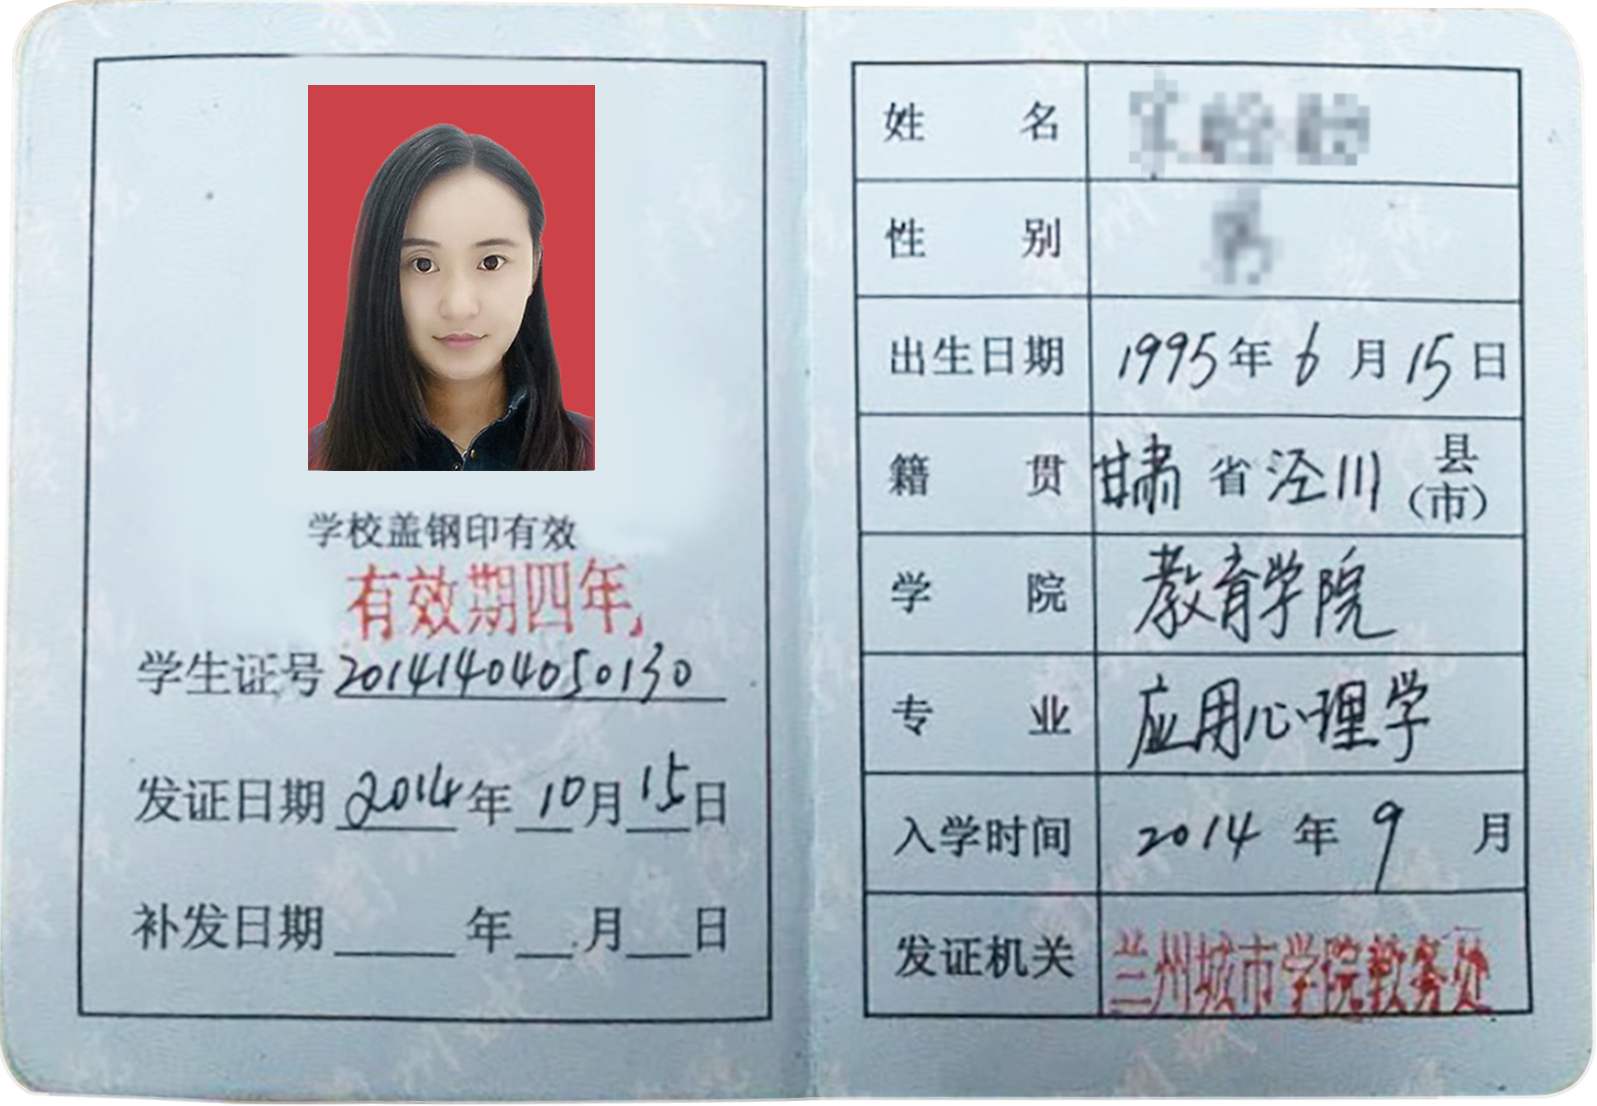 学校盖钢印有效
有效期四年
学生证号 20141404050130
发证日期 2014 年 10 月 15 日
补发日期 年 月 日
姓名
性别
出生日期 1995 年 6 月 15 日
籍贯 甘肃 省 泾川 县(市)
学院 教育学院
专业 应用心理学
入学时间 2014 年 9 月
发证机关 兰州城市学院教务处